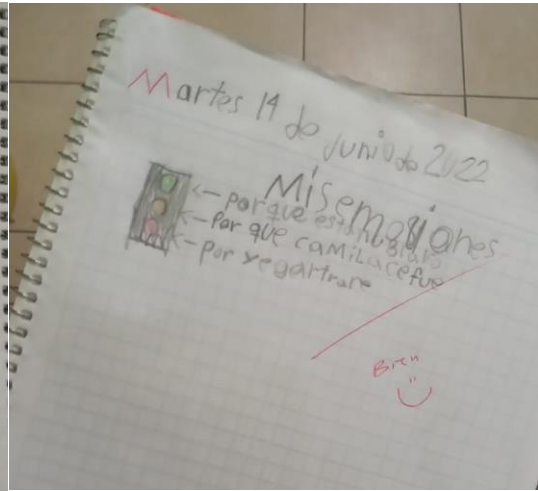 Martes 14 de junio de 2022
Mis emociones
por que
por que camila cefue
por yegartrare
Bien